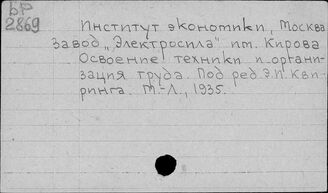 БР
2869
Институт экономики, Москва
завод „Электросила" им. Кирова
Освоение техники и органи-
зация труда. Под ред. Э.И. Кви-
ринга. М.-Л., 1935.